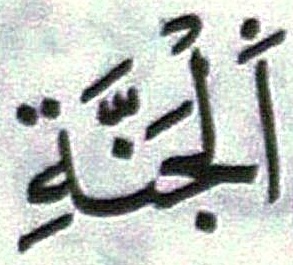 اَلْجَنَّةِ